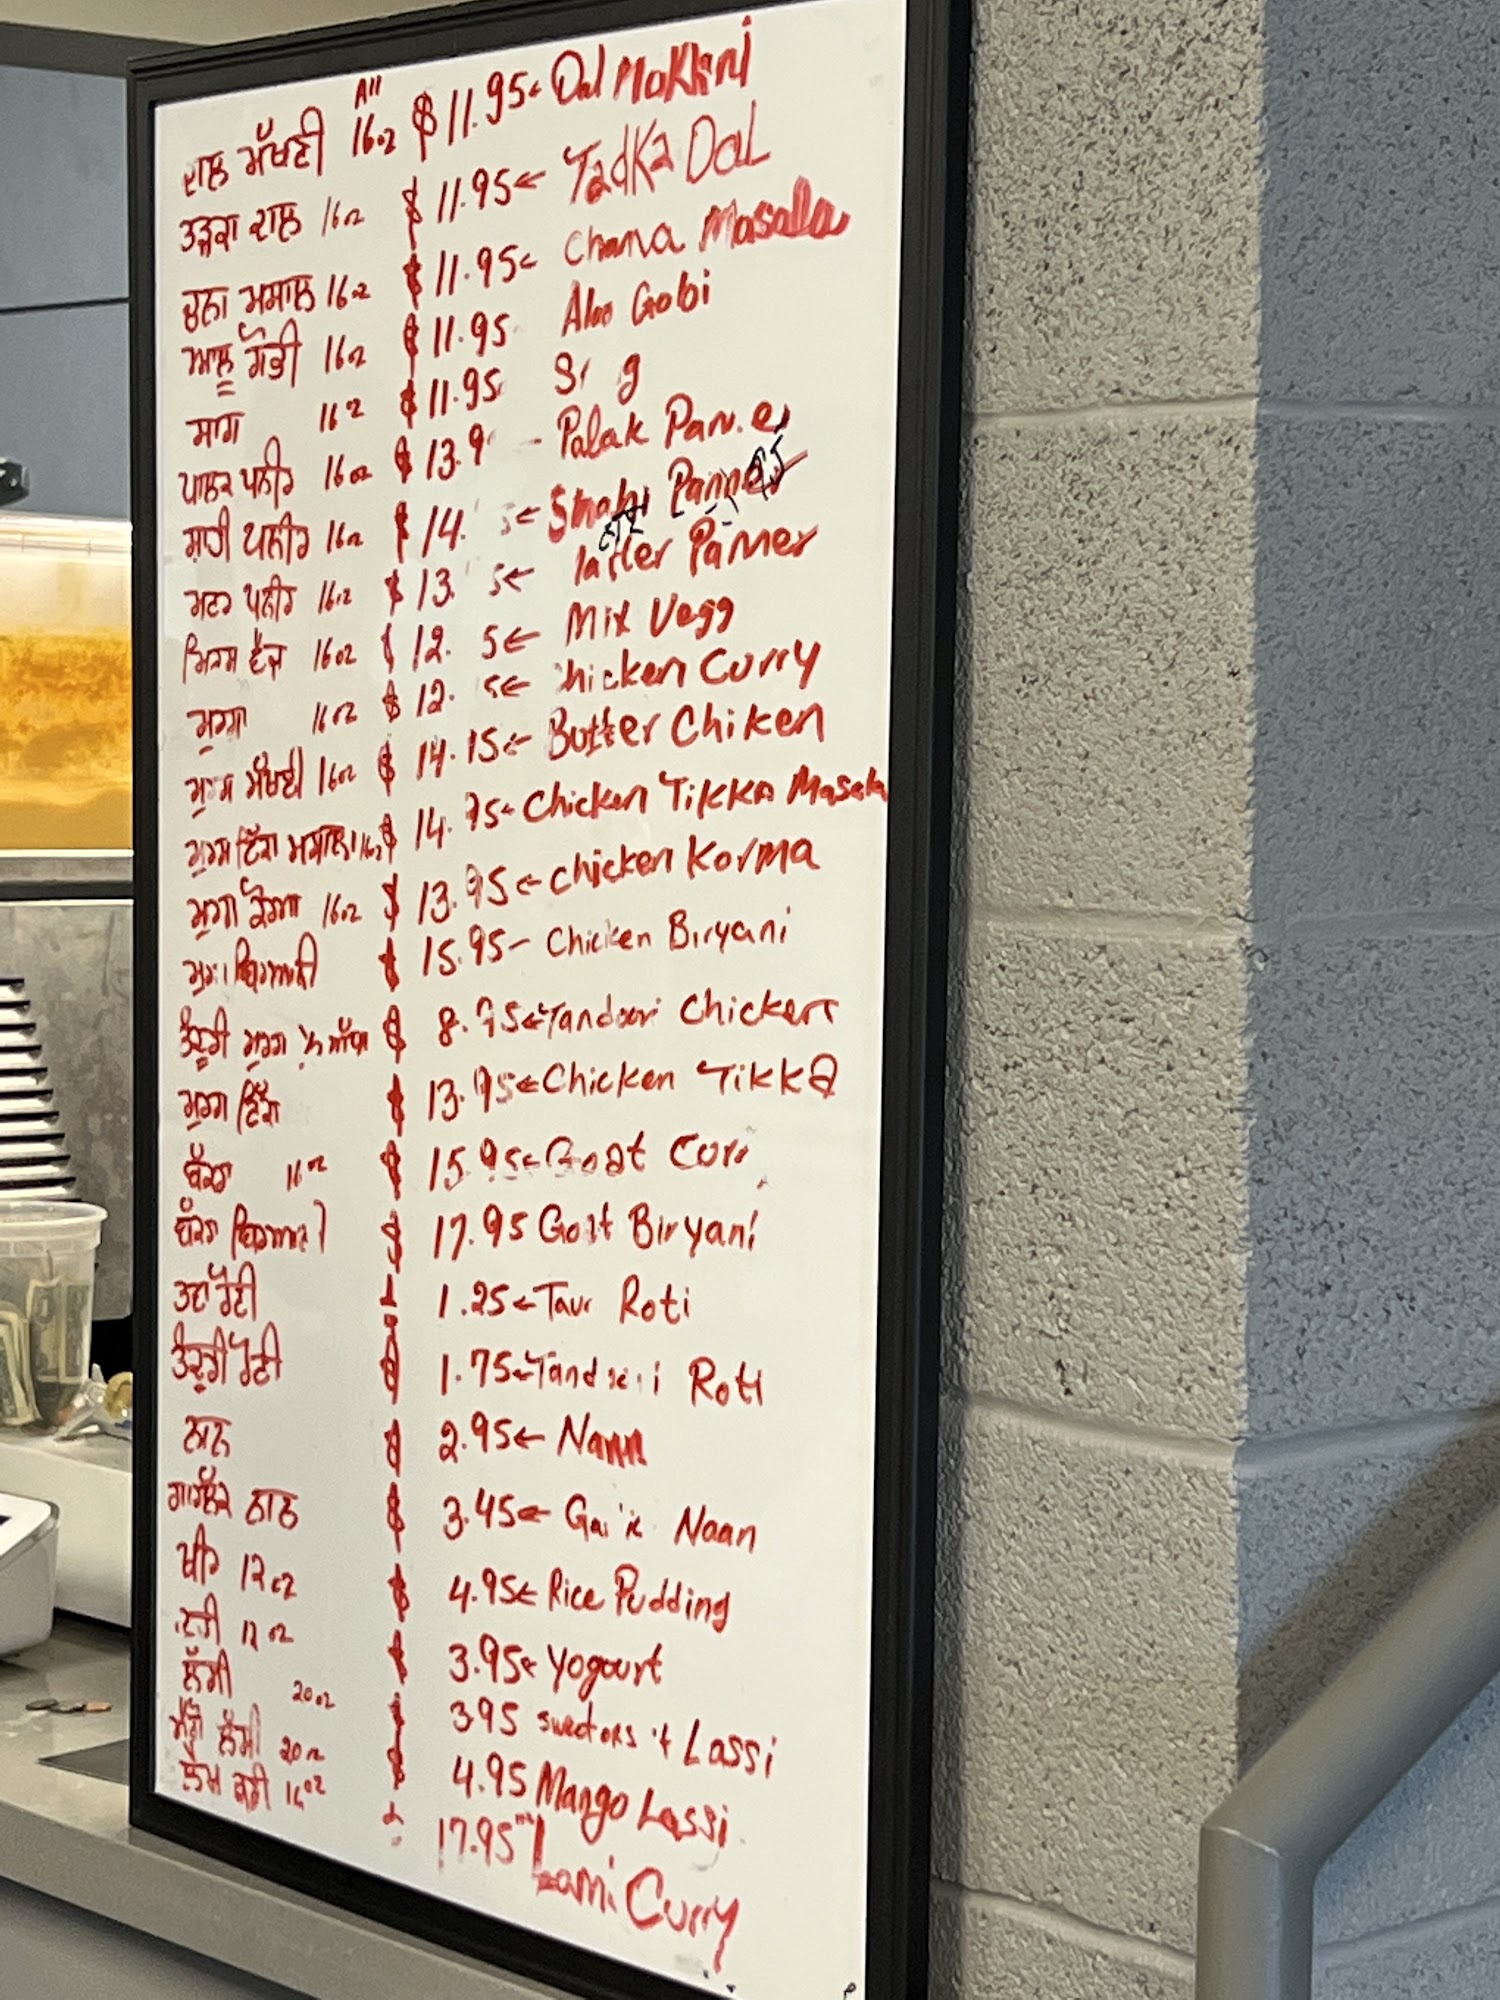 ਦਾਲ ਮੱਖਣੀ All 16oz $11.95← Dal Makhni
ਤੜਕਾ ਦਾਲ 16oz $11.95← Tadka Dal
ਚਨਾ ਮਸਾਲ 16oz $11.95← Chana Masala
ਆਲੂ ਗੋਭੀ 16oz $11.95 Aloo Gobi
ਸਾਗ 16oz $11.95
ਪਾਲਕ ਪਨੀਰ 16oz $13.9 - Palak
ਸ਼ਾਹੀ ਪਨੀਰ 16oz $14. 5← Shahi
ਮਟਰ ਪਨੀਰ 16oz $13. 5←
ਮਿਕਸ ਵੈਜ 16oz $12. 5← Mix Vegg
ਮੁਰਗਾ 16oz $12. 5← hicken Curry
ਮੁਰਗ ਮੱਖਣੀ 16oz $14.15← Butter Chiken
ਮੁਰਗ ਟਿੱਕਾ ਮਸਾਲਾ 16oz $14.95← Chicken Tikka Masala
ਮੁਰਗਾ ਕੋਰਮਾ 16oz $13.95← Chicken Korma
ਮੁਰਗਾ ਬਿਰਆਨੀ $15.95- Chicken Biryani
ਤੰਦੂਰੀ ਮੁਰਗ $8.95← Tandoori Chicken
ਮੁਰਗ ਟਿੱਕਾ $13.95← Chicken Tikka
ਬੱਕਰਾ 16oz $15.95← Goat Curr
ਬੱਕਰਾ $17.95 Goat Biryani
ਤਵਾ ਰੋਟੀ 1.25← Roti
ਤੰਦੂਰੀ ਰੋਟੀ $1.75← Roti
ਨਾਨ $2.95← Nann
ਗਾਰਲਿਕ ਨਾਨ $3.45← Naan
ਖੀਰ 12oz $4.95← Rice Pudding
ਦਹੀ 12oz $3.95← Yogourt
ਲੱਸੀ 20oz $395 Lassi
ਮੈਂਗੋ ਲੱਸੀ 20oz $4.95 Mango Lassi
ਲੈਮ ਕਰੀ 16oz 17.95 Curry